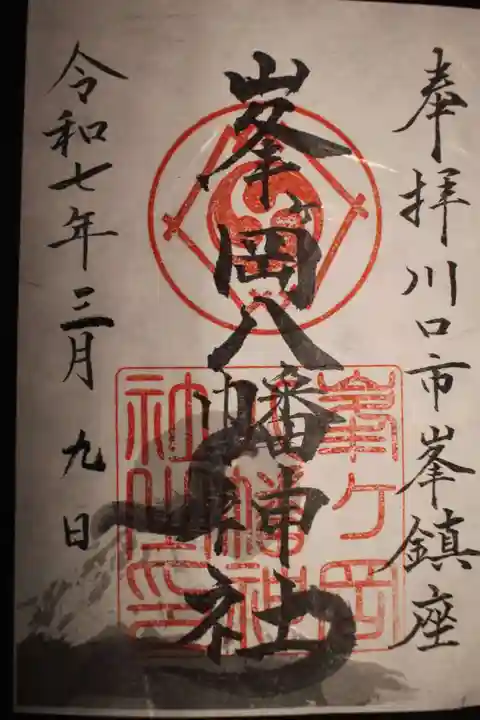 奉拝川口市峯鎮座
峯ヶ岡八幡神社
令和七年三月九日
峯ヶ岡
八幡神
社之印